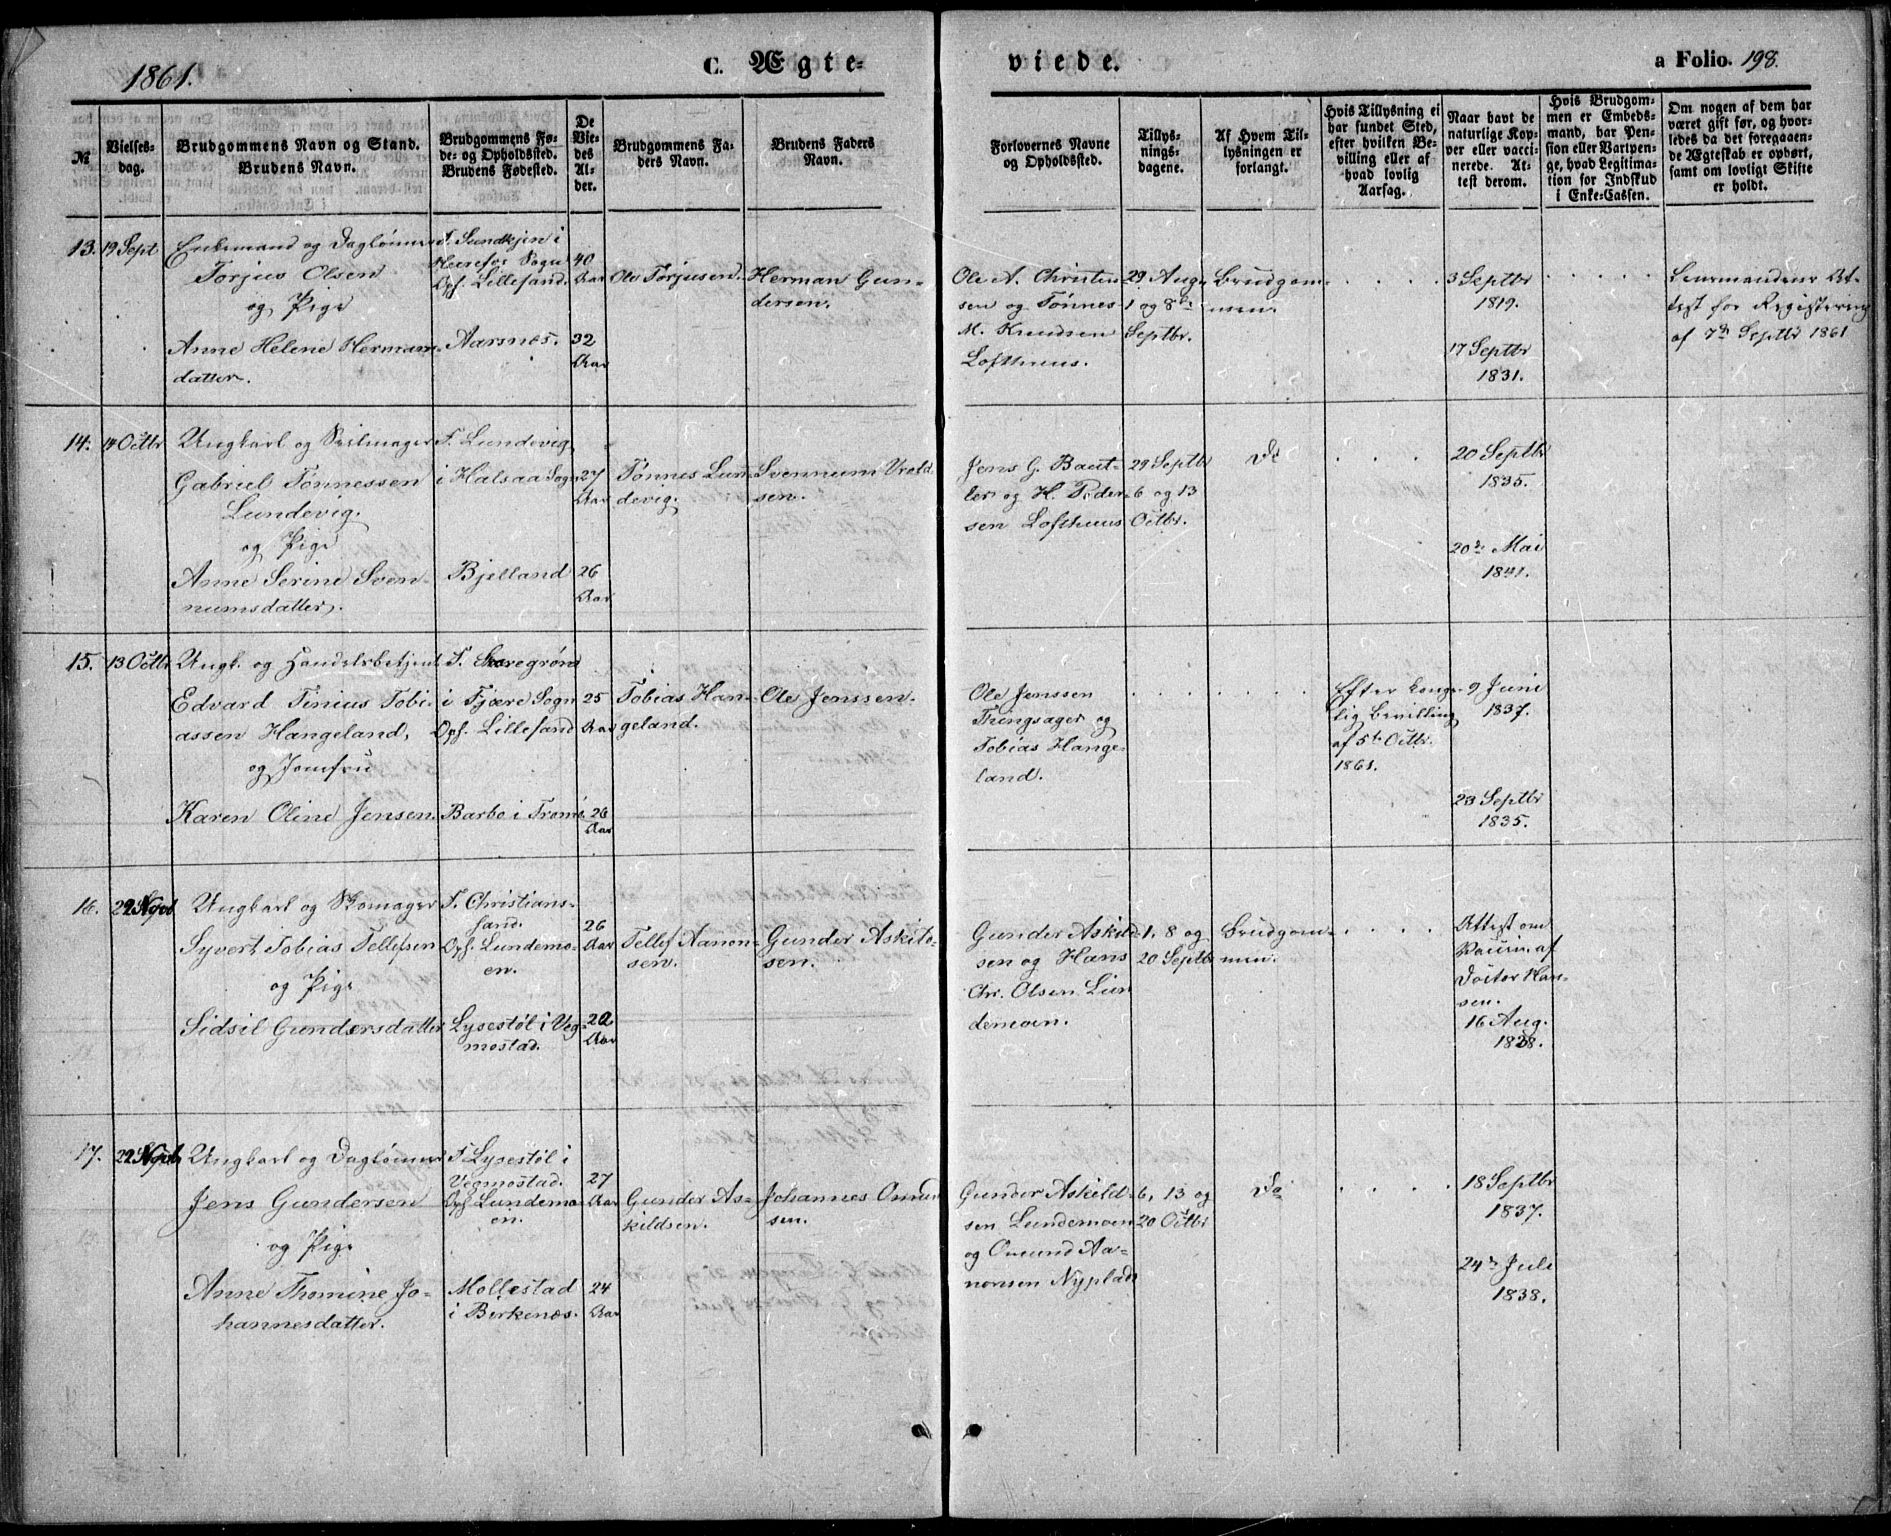 1861.
C. Ægte-
viede.
a Folio. 198.
№
Vielses-
dag.
Brudgommens Navn og Stand.
Brudens Navn.
Brudgommens Fø-
de- og Opholdssted.
Brudens Fødested.
De
Vie-
des
Al-
der.
Brudgommens Fa-
ders Navn.
Brudens Faders
Navn.
Forlovernes Navne
og Opholdssted.
Tillys-
nings-
dagene.
Af Hvem Til-
lysningen er
forlangt.
Hvis Tillysning ei
har fundet Sted,
efter hvilken Be-
villing eller af
hvad lovlig
Aarsag.
Naar havt de
naturlige Kop-
per eller vacci-
nerede. At-
test derom.
Hvis Brudgom-
men er Embeds-
mand, har Pen-
sion eller Vartpen-
ge, hvad Legitima-
tion for Indskud
i Enke-Cassen.
Om nogen af dem har
været gift før, og hvor-
ledes da det foregaaen-
de Ægteskab er ophørt,
samt om lovligt Skifte
er holdt.
13. 19 Sept
Enkemand og Daglønner
Torjus Olsen
og Pige
Anne Helene Herman-
datter.
F. Sundkjen i
Heerefos Sogn
Oph. Lillesand.
Aarsnes.
40
Aar
32
Aar
Ole Torjusen.
Herman Gun-
dersen.
Ole A. Christen
sen og Tønnes
M. Knudsen
Lofthuus.
29 Aug.
1 og 8de
Septbr.
Brudgom-
men.
3 Septbr
1819.
17 Septbr
1831.
Lensmandens At-
test for Registering
af 7de Septbr 1861
14. 14 Octbr
Ungkarl og Seilmager
Gabriel Tønnessen
Lundevig.
og Pige
Anne Serine Sven-
numsdatter.
F. Lundevig
i Halsaa Sogn
Bjelland
27
Aar
26
Aar
Tønnes Lun-
devig.
Svennum Vrold
sen.
Jens G. Baut-
ler og H. Peder-
sen Lofthuus
29 Septbr
6 og 13
Octbr.
Do
20 Septbr
1835.
20de Mai
1841.
15. 13 Octbr
Ungk. og Handelsbetjent
Edvard Tinius Tobi-
assen Hangeland,
og Jomfru
Karen Oline Jensen.
F. Skaregrøn
i Fjære Sogn
Oph. Lillesand
Barbo i Tromø
25
Aar
26
Aar
Tobias Han-
geland.
Ole Jenssen.
Ole Jenssen
Tringsager og
Tobias Hange-
land.
Efter konge-
lig Bevilling
af 5te Octbr.
1861.
9 Juni
1837.
23 Septbr
1835.
16.
Ungkarl og Skomager
Syvert Tobias Tellefsen
og Pige
Sidsil Gundersdatter
F. Christians-
sand.
Oph. Lundemo-
en.
Lysestøl i Veg-
mostad.
26
Aar
Aar
Tellef Aanon-
sen.
Gunder Askild-
sen.
Gunder Askild-
sen og Hans
Chr. Olsen Lun
demoen.
1, 8 og
20 Septbr
Brudgom-
men.
Attest om
Vaccin. af
Doctor Han-
sen.
16 Aug.
1838.
17.
Ungkarl og Daglønner
Jens Gundersen
og Pige
Anne Thomine Jo-
hannesdatter.
F. Lysestøl i
Vegmostad.
Oph. Lundemo-
en.
Mollestad
i Birkenæs.
27
Aar
24
Aar
Gunder As-
kildsen.
Johannes Omun
sen.
Gunder Askild-
sen Lundemoen
og Omund Aa-
nonsen Nyplads
6, 13 og
20 Octbr
Do
18 Septbr
1837.
24de Juli
1838.